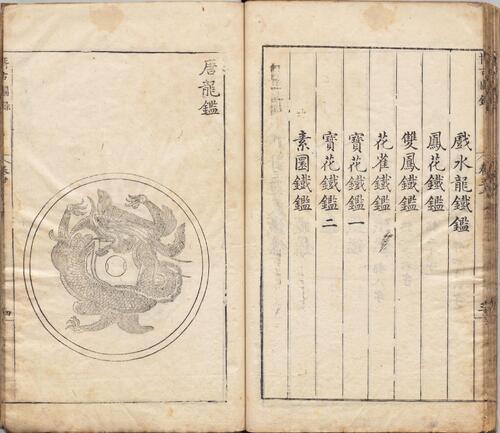 戲水龍鐵鑑
鳳花鐵鑑
雙鳳鐵鑑
花雀鐵鑑
寶花鐵鑑一
寶花鐵鑑二
素圜鐵鑑
唐龍鑑
四